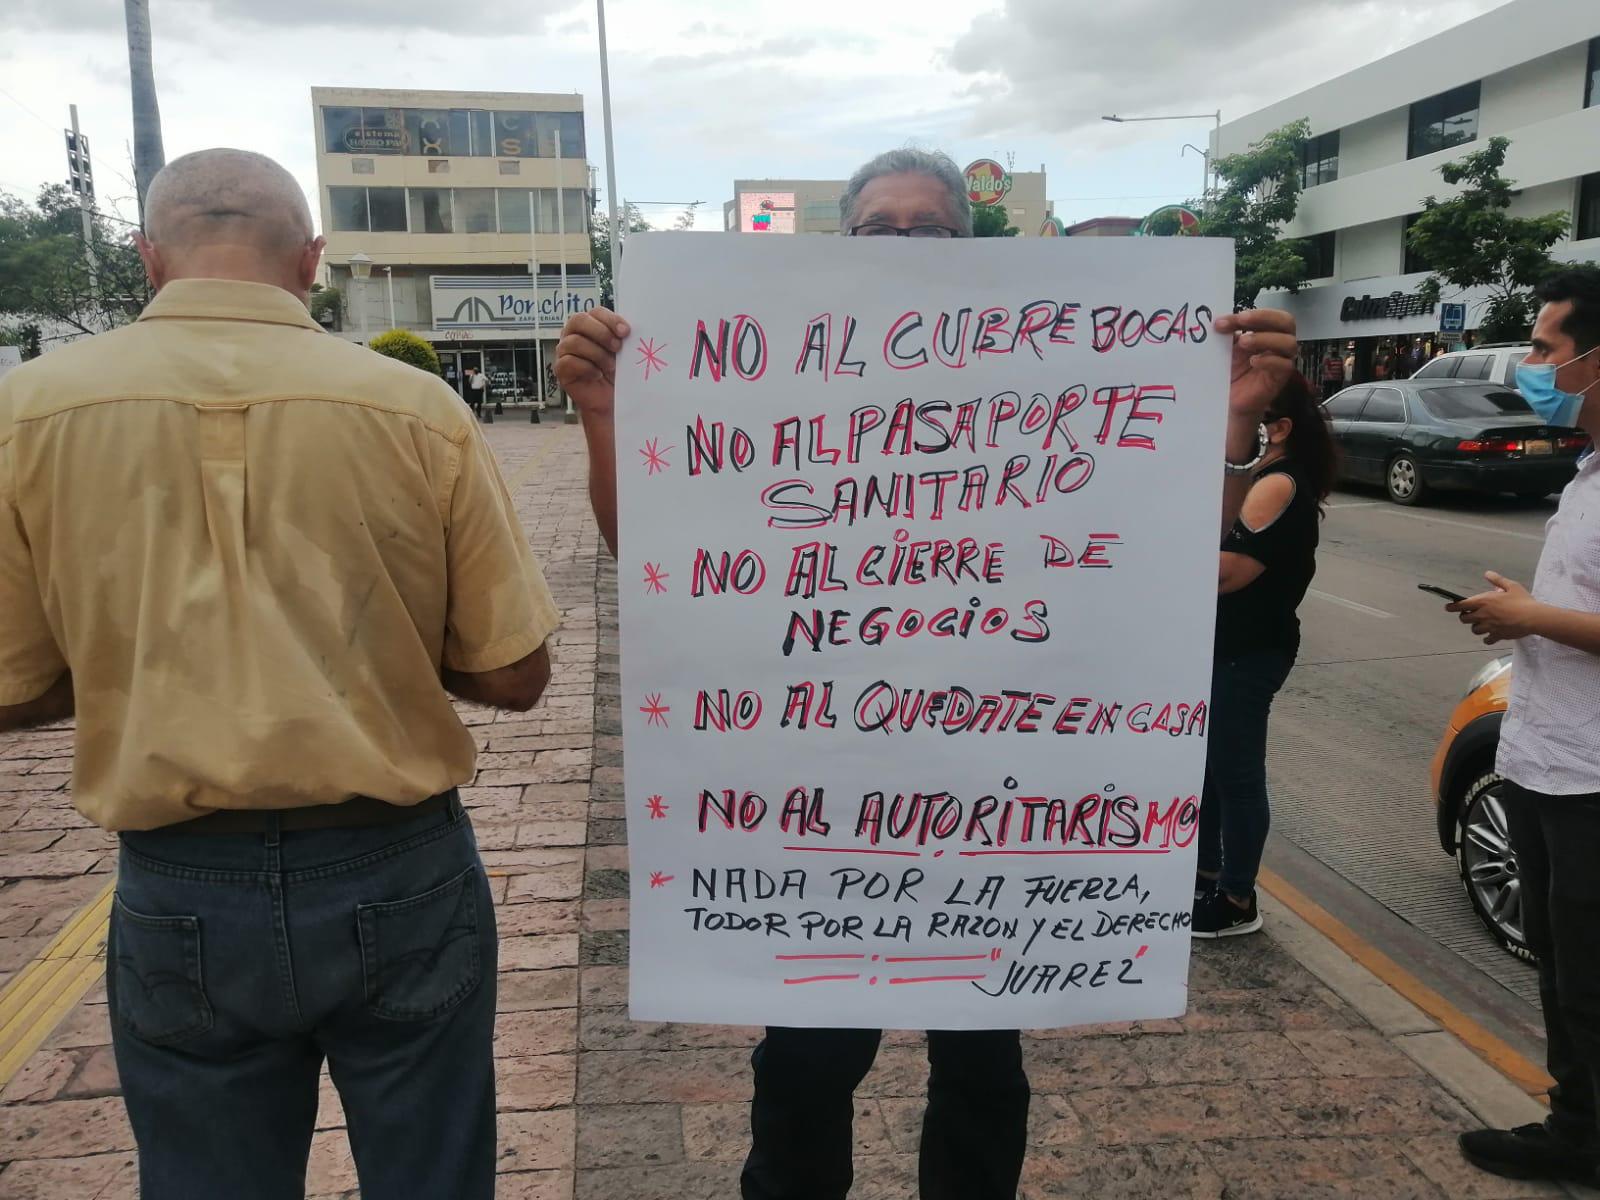 * NO AL CUBRE BOCAS
* NO AL PASAPORTE
SANITARIO
* NO AL CIERRE DE
NEGOCIOS
* NO AL QUEDATE EN CASA
* NO AL AUTORITARISMO
* NADA POR LA FUERZA,
TODOR POR LA RAZON Y EL DERECHO
"JUAREZ"
Ponchito
ZAPATERIAS
COPIAS
sistema
Waldo's